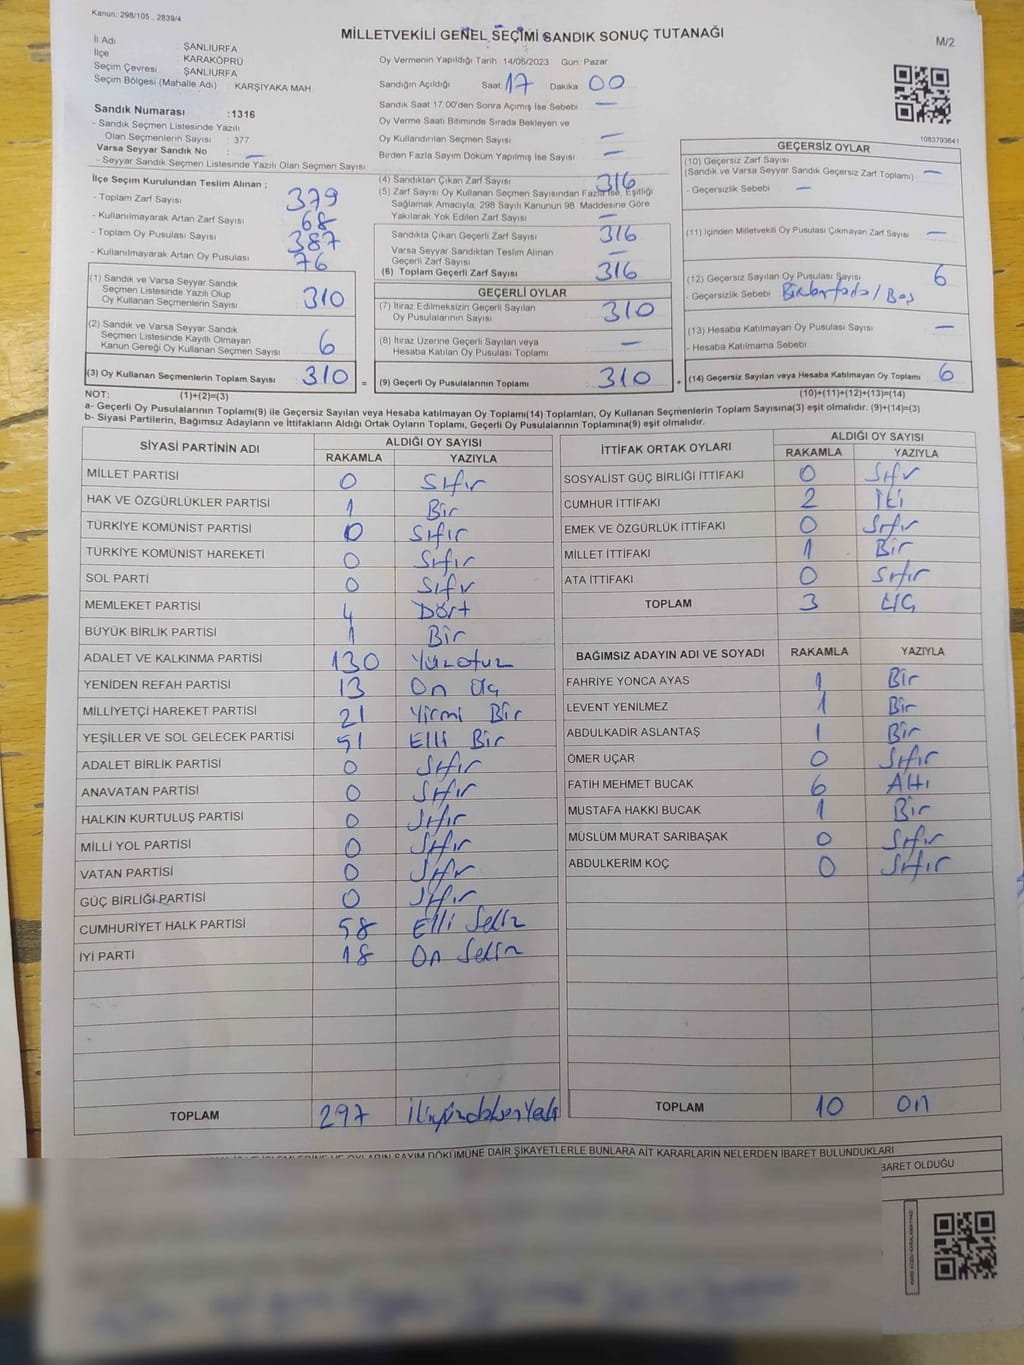 Kanun: 298/105 , 2839/4
MİLLETVEKİLİ GENEL SEÇİMİ SANDIK SONUÇ TUTANAĞI
M/2
İl Adı ŞANLIURFA
İlçe KARAKÖPRÜ
Seçim Çevresi ŞANLIURFA
Seçim Bölgesi (Mahalle Adı) KARŞIYAKA MAH
Oy Vermenin Yapıldığı Tarih :14/05/2023 Gün: Pazar
Sandığın Açıldığı Saat 17 Dakika 00
Sandık Saat 17:00'den Sonra Açımış İse Sebebi —
Oy Verme Saati Bitiminde Sırada Bekleyen ve
Oy Kullandırılan Seçmen Sayısı —
Birden Fazla Sayım Döküm Yapılmış İse Sayısı —
Sandık Numarası :1316
- Sandık Seçmen Listesinde Yazılı
Olan Seçmenlerin Sayısı : 377
Varsa Seyyar Sandık No : —
- Seyyar Sandık Seçmen Listesinde Yazılı Olan Seçmen Sayısı
1083793641
İlçe Seçim Kurulundan Teslim Alınan ;
- Toplam Zarf Sayısı 379
- Kullanılmayarak Artan Zarf Sayısı 68
- Toplam Oy Pusulası Sayısı 387
- Kullanılmayarak Artan Oy Pusulası 76
(1) Sandık ve Varsa Seyyar Sandık
Seçmen Listesinde Yazılı Olup
Oy Kullanan Seçmenlerin Sayısı 310
(2) Sandık ve Varsa Seyyar Sandık
Seçmen Listesinde Kayıtlı Olmayan
Kanun Gereği Oy Kullanan Seçmen Sayısı 6
(3) Oy Kullanan Seçmenlerin Toplam Sayısı 310 =
(4) Sandıktan Çıkan Zarf Sayısı 316
(5) Zarf Sayısı Oy Kullanan Seçmen Sayısından Fazla ise, Eşitliği
Sağlamak Amacıyla, 298 Sayılı Kanunun 98 Maddesine Göre
Yakılarak Yok Edilen Zarf Sayısı —
Sandıkta Çıkan Geçerli Zarf Sayısı 316
Varsa Seyyar Sandıktan Teslim Alınan
Geçerli Zarf Sayısı —
(6) Toplam Geçerli Zarf Sayısı 316
GEÇERLİ OYLAR
(7) İtiraz Edilmeksizin Geçerli Sayılan
Oy Pusulalarının Sayısı 310
(8) İtiraz Üzerine Geçerli Sayılan veya
Hesaba Katılan Oy Pusulası Toplamı —
(9) Geçerli Oy Pusulalarının Toplamı 310 +
GEÇERSİZ OYLAR
(10) Geçersiz Zarf Sayısı
(Sandık ve Varsa Seyyar Sandık Geçersiz Zarf Toplamı) —
- Geçersizlik Sebebi —
(11) İçinden Milletvekili Oy Pusulası Çıkmayan Zarf Sayısı —
(12) Geçersiz Sayılan Oy Pusulası Sayısı 6
- Geçersizlik Sebebi / Boş
(13) Hesaba Katılmayan Oy Pusulası Sayısı —
- Hesaba Katılmama Sebebi
(14) Geçersiz Sayılan veya Hesaba Katılmayan Oy Toplamı 6
NOT: (1)+(2)=(3) (10)+(11)+(12)+(13)=(14)
a- Geçerli Oy Pusulalarının Toplamı(9) ile Geçersiz Sayılan veya Hesaba katılmayan Oy Toplamı(14) Toplamları, Oy Kullanan Seçmenlerin Toplam Sayısına(3) eşit olmalıdır. (9)+(14)=(3)
b- Siyasi Partilerin, Bağımsız Adayların ve İttifakların Aldığı Ortak Oyların Toplamı, Geçerli Oy Pusulalarının Toplamına(9) eşit olmalıdır.
SİYASİ PARTİNİN ADI ALDIĞI OY SAYISI
RAKAMLA YAZIYLA
MİLLET PARTİSİ 0 Sıfır
HAK VE ÖZGÜRLÜKLER PARTİSİ 1 Bir
TÜRKİYE KOMÜNİST PARTİSİ 0 Sıfır
TÜRKİYE KOMÜNİST HAREKETİ 0 Sıfır
SOL PARTİ 0 Sıfır
MEMLEKET PARTİSİ 4 Dört
BÜYÜK BİRLİK PARTİSİ 1 Bir
ADALET VE KALKINMA PARTİSİ 130 Yüzotuz
YENİDEN REFAH PARTİSİ 13 On üç
MİLLİYETÇİ HAREKET PARTİSİ 21 Yirmi Bir
YEŞİLLER VE SOL GELECEK PARTİSİ 51 Elli Bir
ADALET BİRLİK PARTİSİ 0 Sıfır
ANAVATAN PARTİSİ 0 Sıfır
HALKIN KURTULUŞ PARTİSİ 0 Sıfır
MİLLİ YOL PARTİSİ 0 Sıfır
VATAN PARTİSİ 0 Sıfır
GÜÇ BİRLİĞİ PARTİSİ 0 Sıfır
CUMHURİYET HALK PARTİSİ 58 Elli Sekiz
İYİ PARTİ 18 On Sekiz
TOPLAM 297
İTTİFAK ORTAK OYLARI ALDIĞI OY SAYISI
RAKAMLA YAZIYLA
SOSYALİST GÜÇ BİRLİĞİ İTTİFAKI 0 Sıfır
CUMHUR İTTİFAKI 2 İki
EMEK VE ÖZGÜRLÜK İTTİFAKI 0 Sıfır
MİLLET İTTİFAKI 1 Bir
ATA İTTİFAKI 0 Sıfır
TOPLAM 3 üç
BAĞIMSIZ ADAYIN ADI VE SOYADI RAKAMLA YAZIYLA
FAHRİYE YONCA AYAS 1 Bir
LEVENT YENİLMEZ 1 Bir
ABDULKADİR ASLANTAŞ 1 Bir
ÖMER UÇAR 0 Sıfır
FATİH MEHMET BUCAK 6 Altı
MUSTAFA HAKKI BUCAK 1 Bir
MÜSLÜM MURAT SARIBAŞAK 0 Sıfır
ABDULKERİM KOÇ 0 Sıfır
TOPLAM 10 on
OYLARIN SAYIM DÖKÜMÜNE DAİR ŞİKAYETLERLE BUNLARA AİT KARARLARIN NELERDEN İBARET BULUNDUKLARI
BARET OLDUĞU